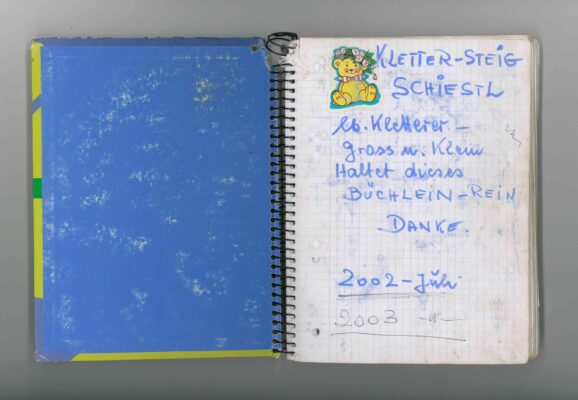 KLETTER-STEIG
SCHIESTL
Lb. Kletterer –
Gross u. Klein
Haltet dieses
BÜCHLEIN-REIN
DANKE.
2002-Juli
2003 -"-